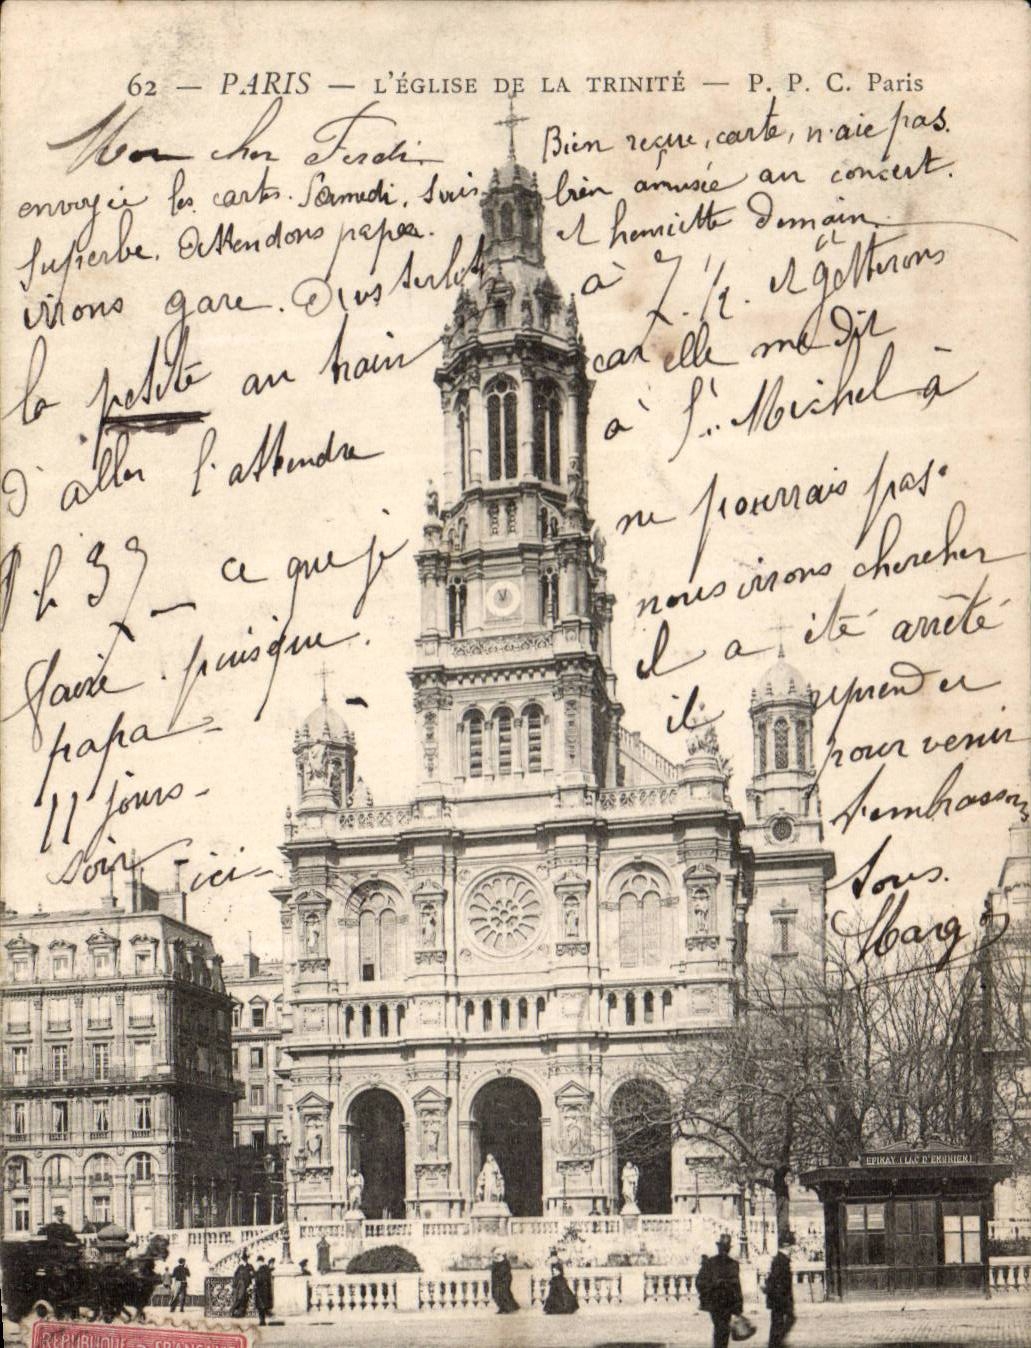 62 — PARIS — L'ÉGLISE DE LA TRINITÉ — P. P. C. Paris
Mon cher Ferdi. Bien reçue, carte, n'aie pas
envoyée les cartes. Samedi, suis bien amusée au concert.
Superbe. Attendons papa. et henriette Demain
irons gare. à 7. 1/2. et
la petite au train car elle me dit
d'aller l'attendre à St. Michel à
ce que je ne pourrais pas.
faire puisque nous irons chercher
papa - il a été arrêté
11 jours - il reprend et
soir - ici - pour venir
t'embrassons
tous.
Marg
EPINAY (LAC D'ENGHIEN)
REPUBLIQUE FRANÇAISE